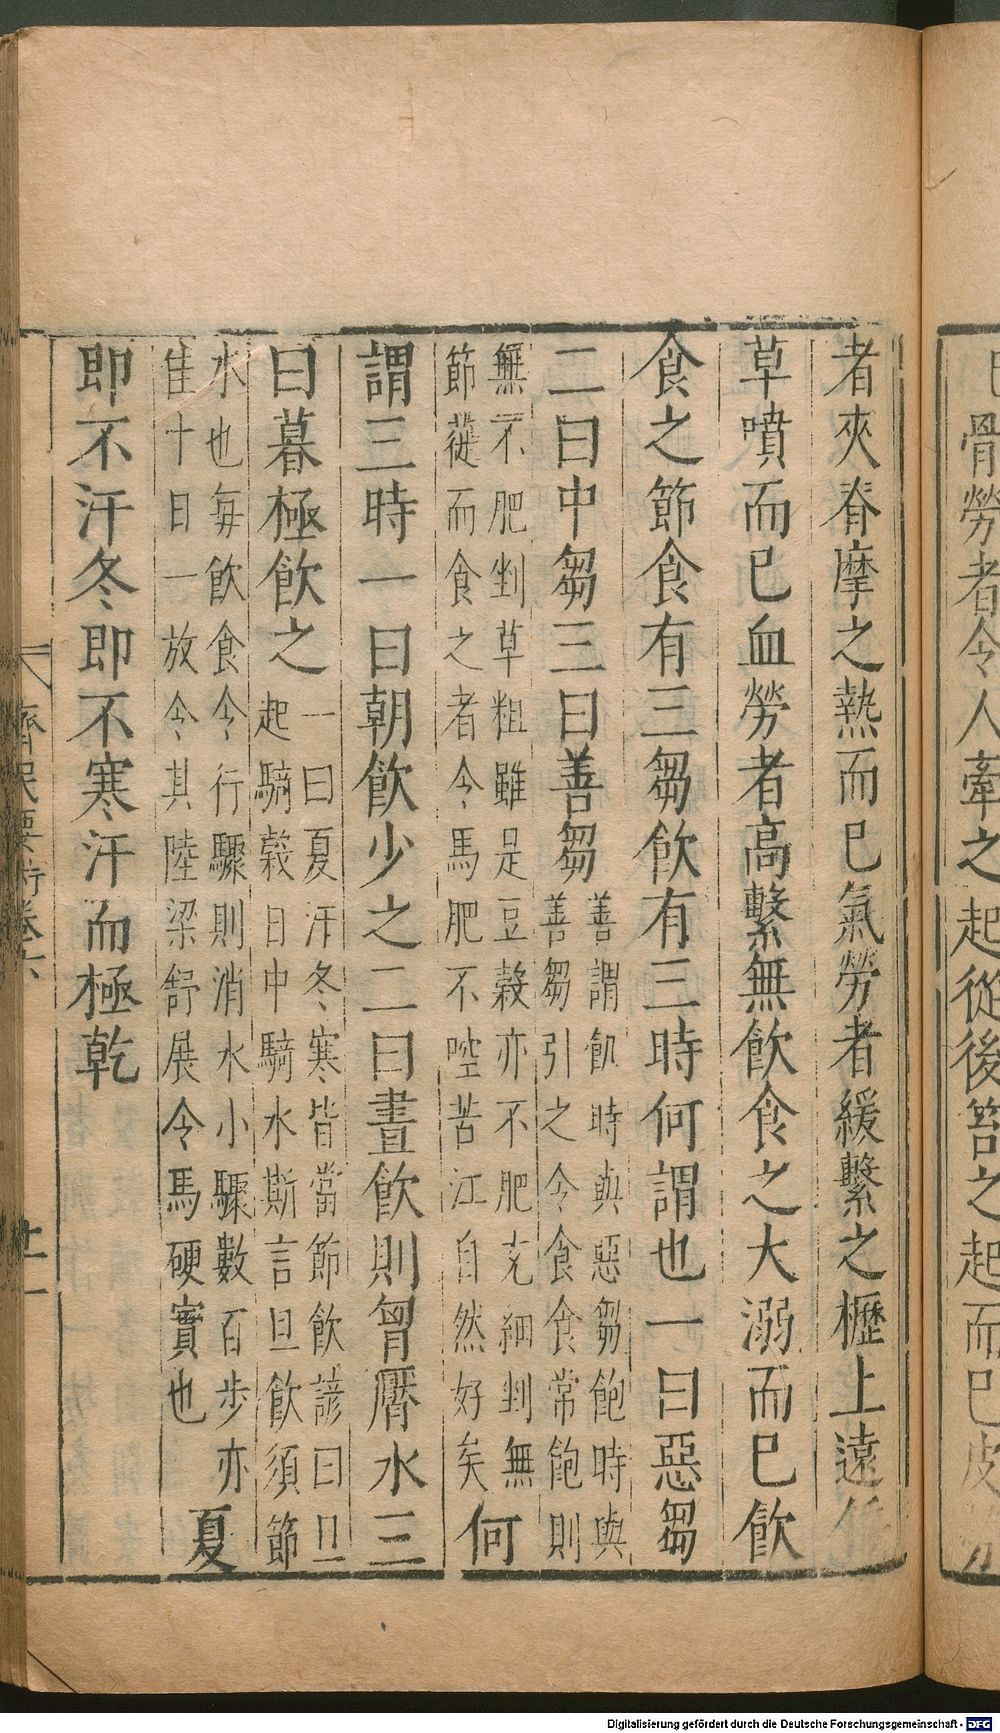 骨勞者令人牽之起從後笞之起而已皮
者夾脊摩之熱而已氣勞者緩繫之櫪上遠
草噴而已血勞者高繫無飲食之大溺而已飲
食之節食有三芻飲有三時何謂也一曰惡芻
二曰中芻三曰善芻
善謂飢時與惡芻飽時與
善芻引之令食食常飽則
無不肥剉草粗雖是豆穀亦不肥充細剉無
節蓰而食之者令馬肥不啌苦江自然好矣
何
謂三時一曰朝飲少之二曰晝飲則胷饜水三
曰暮極飲之
一曰夏汗冬寒皆當節飲諺曰旦
起騎穀日中騎水斯言旦飲須節
水也每飲食令行驟則消水小驟數百步亦
隹十日一放令其陸梁舒展令馬硬實也
夏
即不汗冬即不寒汗而極乾
齊民要術卷六
廿一
Digitalisierung gefördert durch die Deutsche Forschungsgemeinschaft - DFG